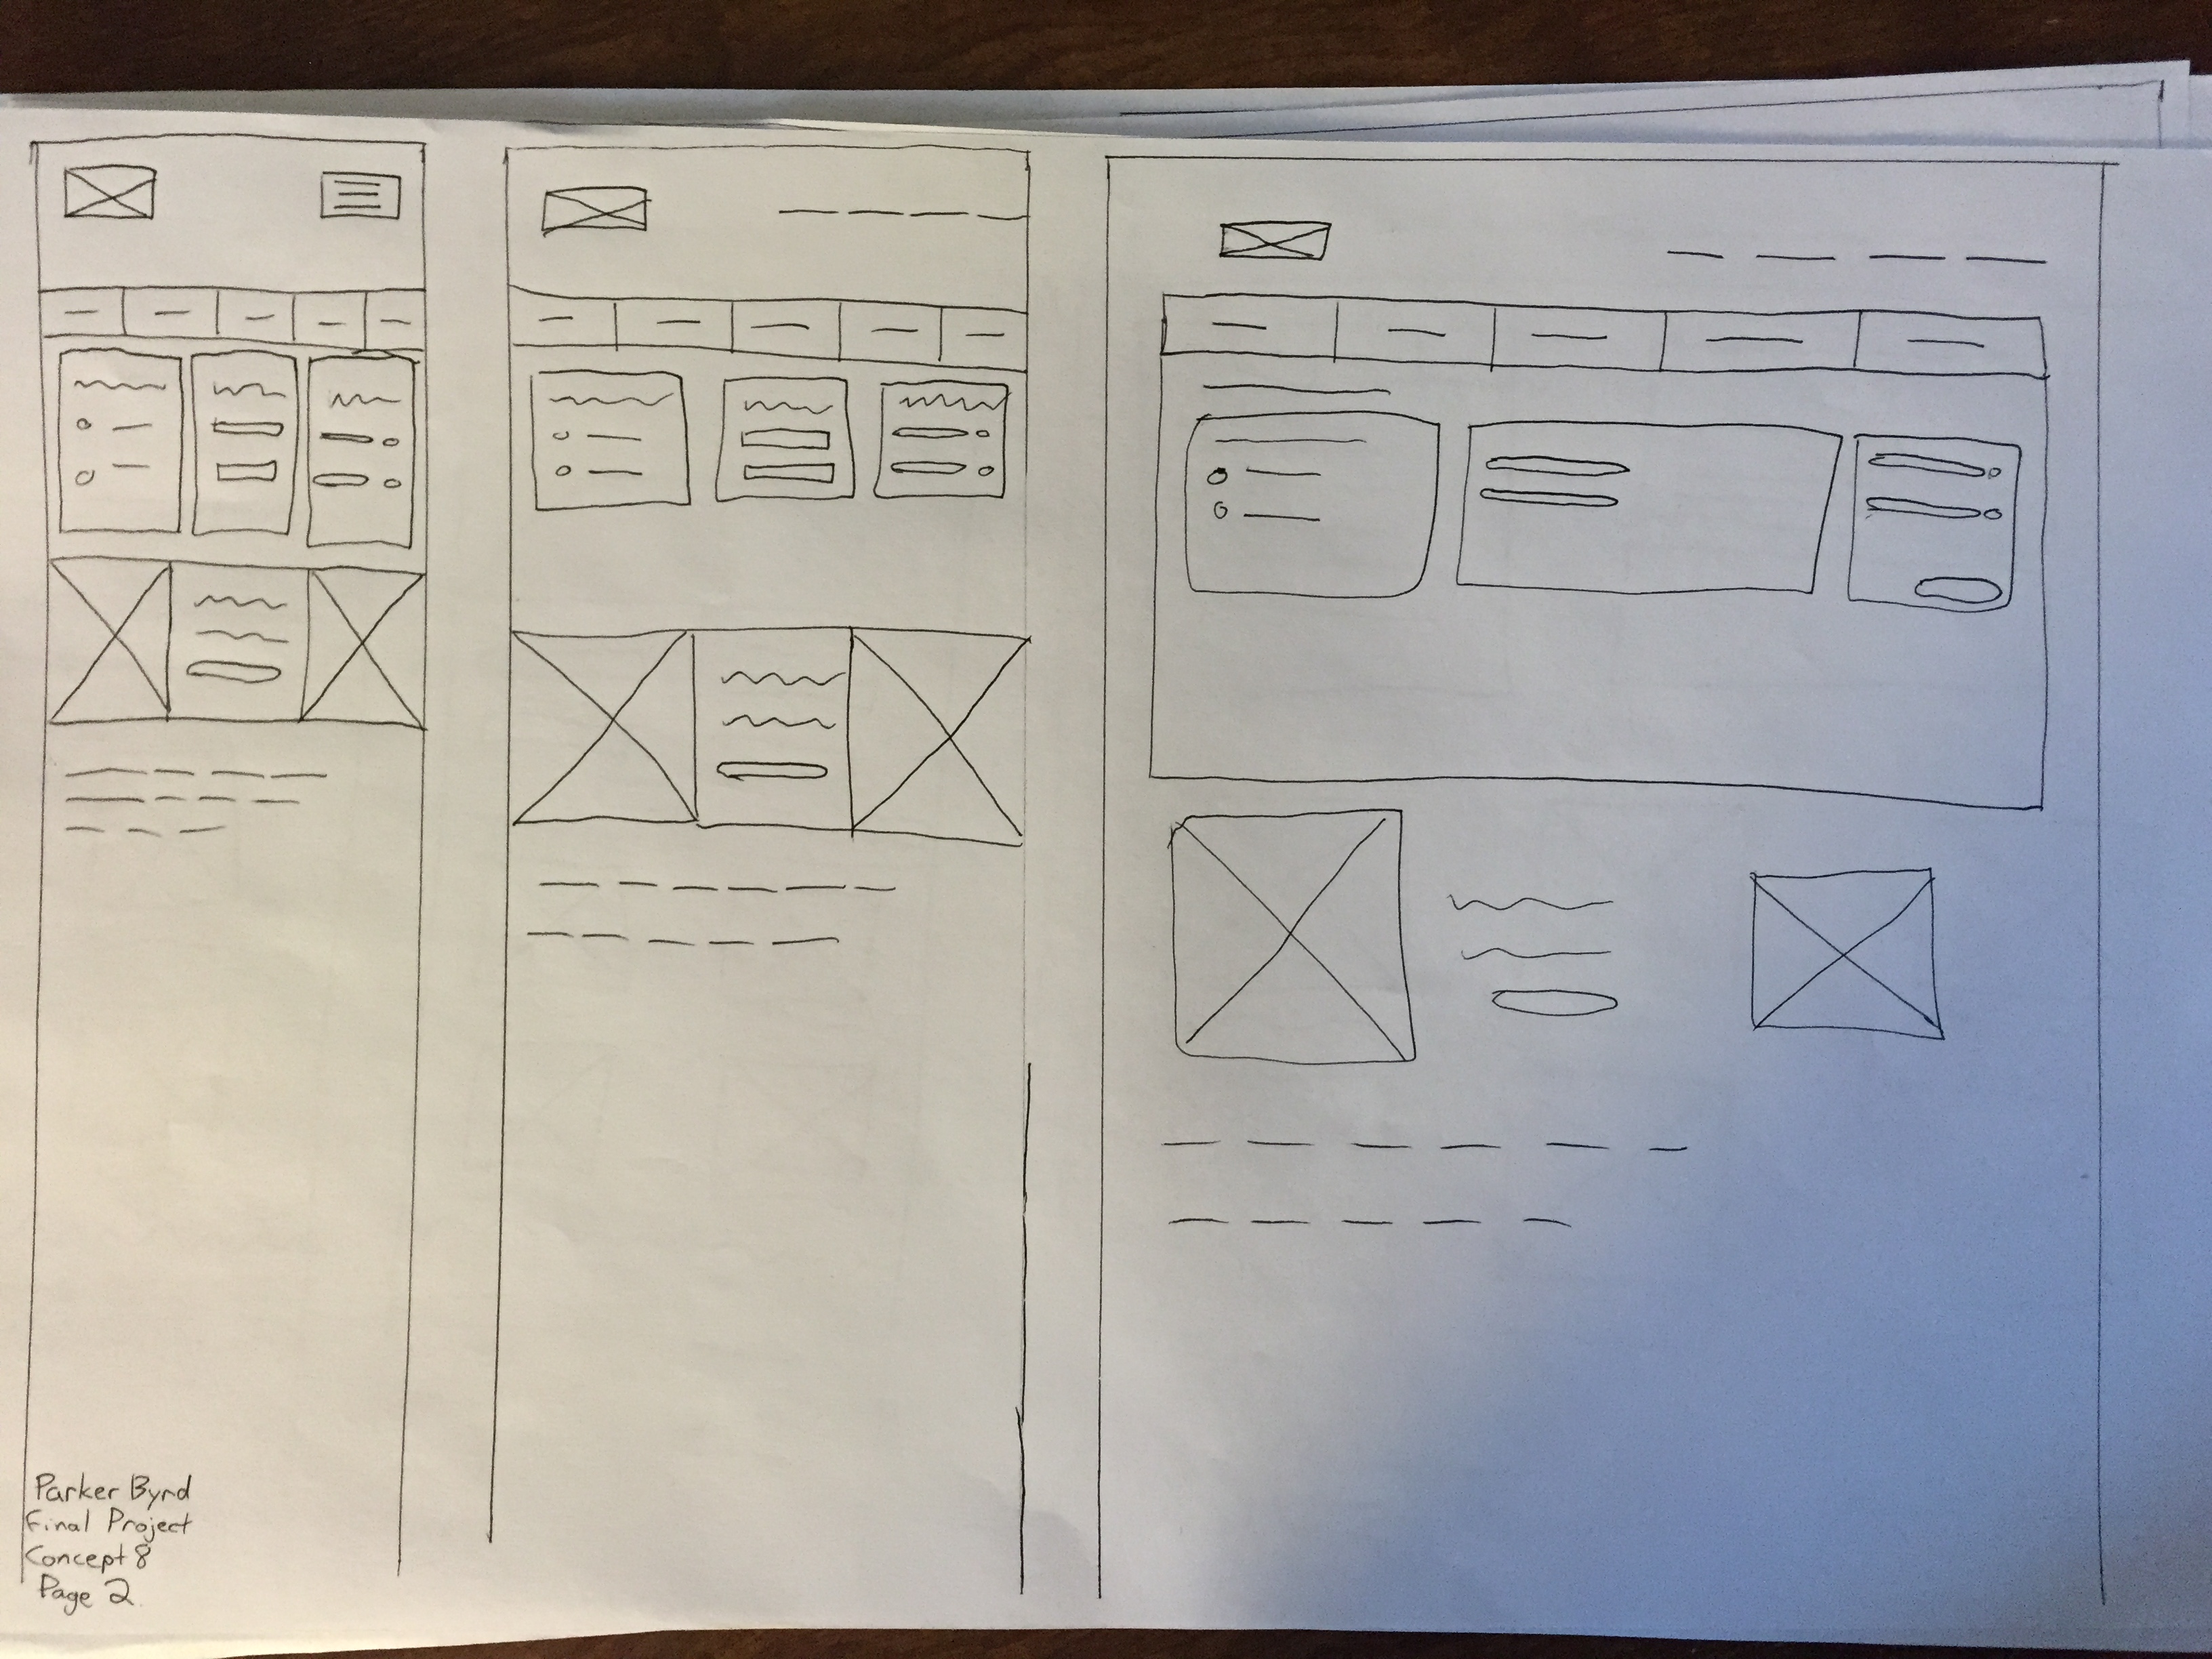 Parker Byrd
Final Project
Concept 8
Page 2